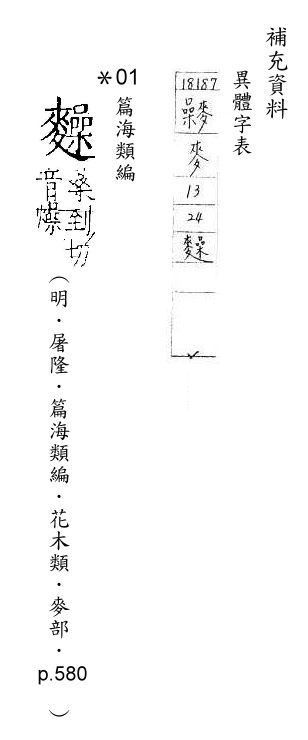 補充資料
異體字表
18187
麥
13
24
*01
篇海類編
桑到切
音燥
（明．屠隆．篇海類編．花木類．麥部．p.580）